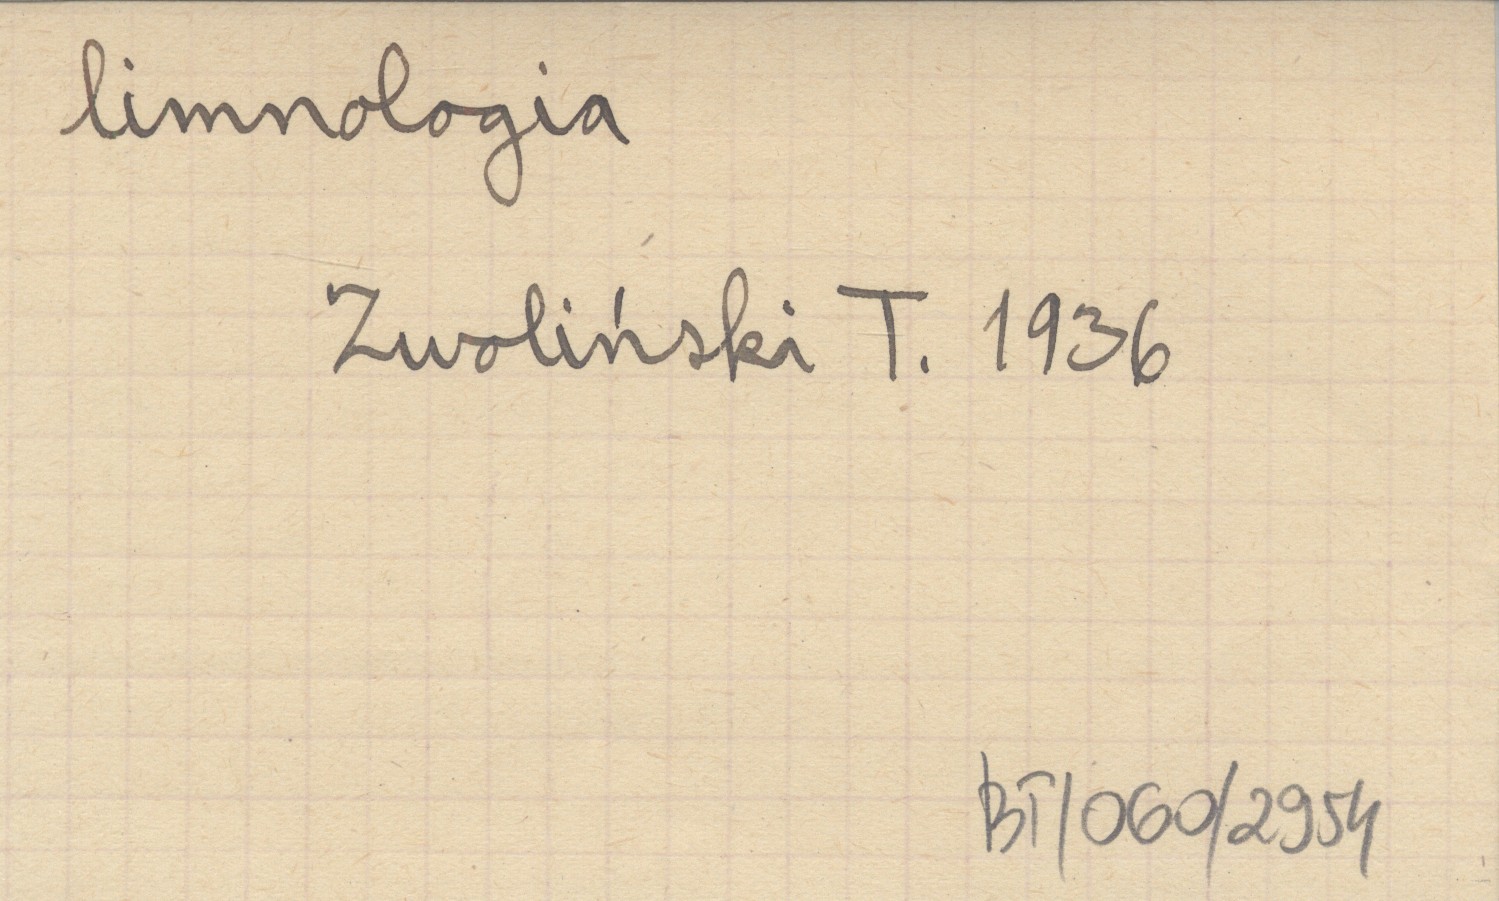 limnologia
Zwoliński T. 1936
BT/060/2954